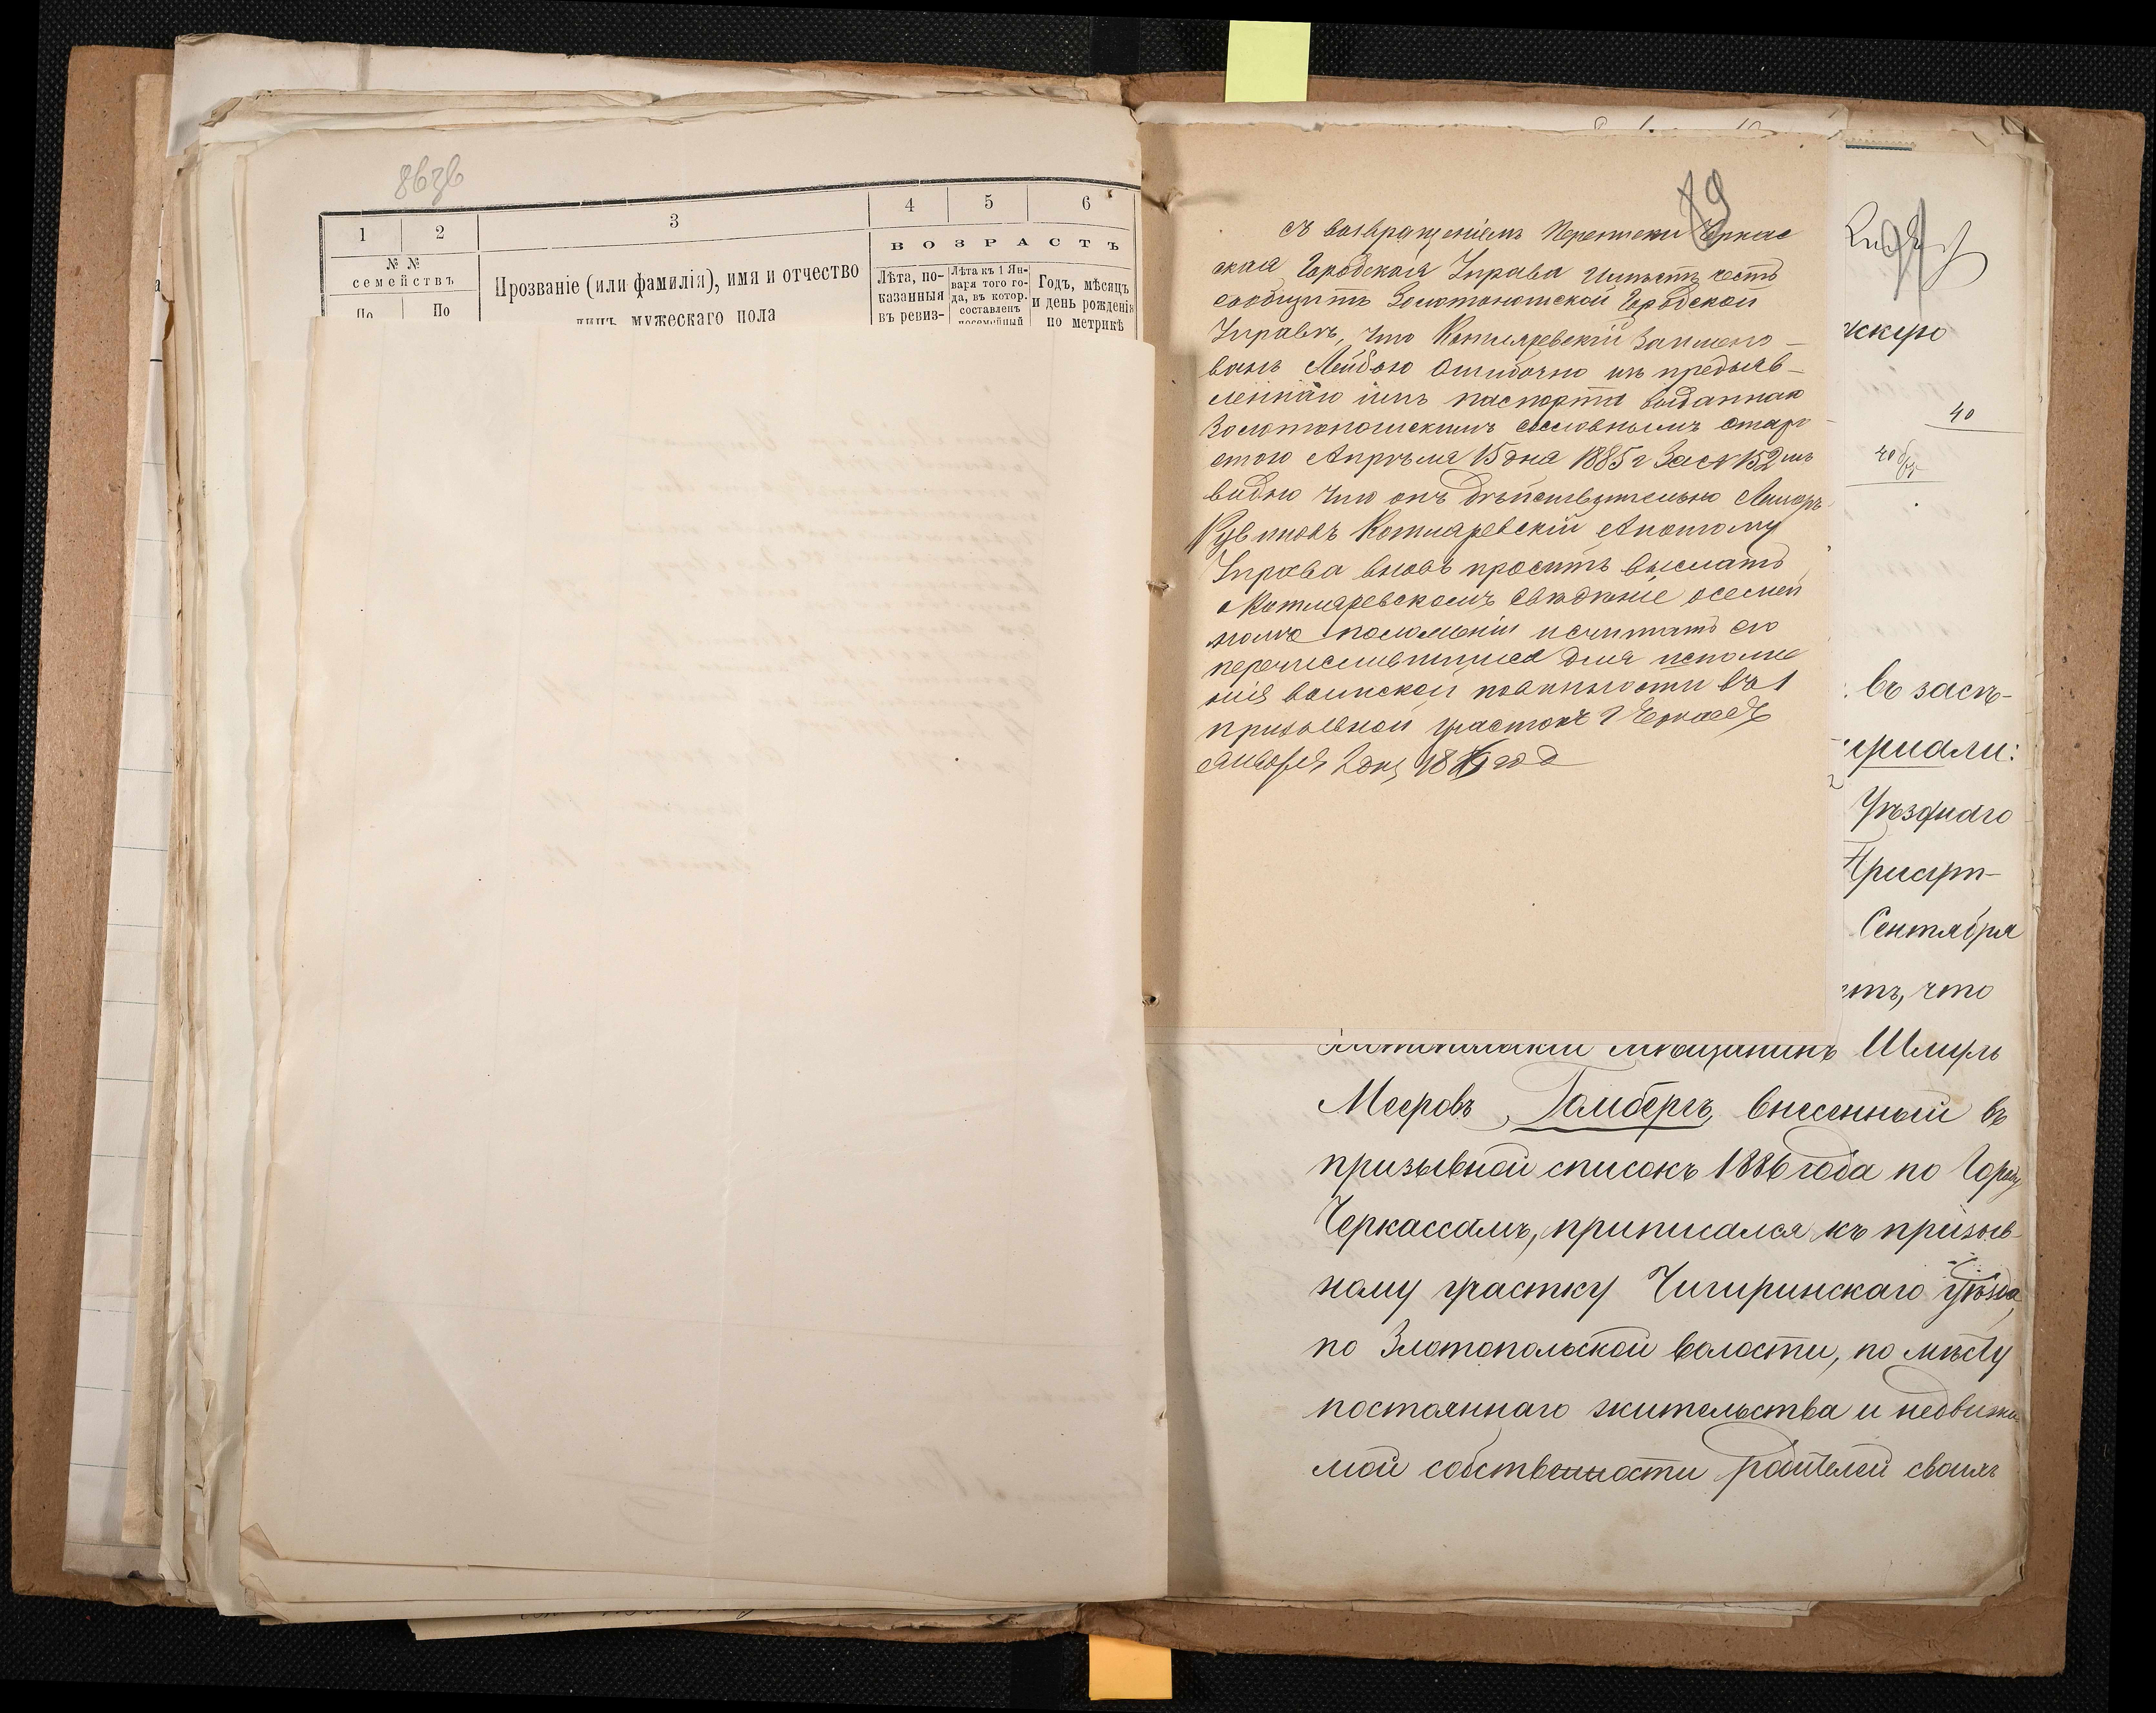 8 об
1 2 3 4 5 6
№ №
семействъ
По По
Прозваніе (или фамилія), имя и отчество
лицъ мужескаго пола
ВОЗРАСТЪ
Лѣта, по-
казанныя
въ ревиз-
Лѣта къ 1 Ян-
варя того го-
да, въ котор.
составленъ
посемейный
Годъ, мѣсяцъ
и день рожденія
по метрикѣ
съ возвращеніемъ переписки Черкас
ская Городская Управа имѣетъ честь
сообщить Золотоношской Городской
Управѣ, что Котляревскій заимено-
ванъ Лейбою ошибочно изъ предъяв-
леннаго имъ паспорта выданнаго
Золотоношскимъ сословнымъ старо
стою Апрѣля 15 дня 1885 г За № 152 изъ
видно что онъ дѣйствительно
Рувиновъ Котляревскій Апотому
Управа вновь проситъ выслать
о Котляревскомъ свѣдѣніе осемей
номъ положеніи исчитать его
перечислившимся для исполне
нія воинской повинности въ 1
призывной участокъ г Черкассъ
Января 2 дня 18 год
40
въ засѣ-
Уѣзднаго
Присут-
Сентября
что
мѣщанинъ Шмуль
Мееровъ Гамбергъ, внесенный въ
призывной списокъ 1886 года по Городу
Черкассамъ, приписался къ призыв-
ному участку Чигиринскаго уѣзда,
по Златопольской волости, по мѣсту
постояннаго жительства и недвижи-
мой собственности родителей своихъ